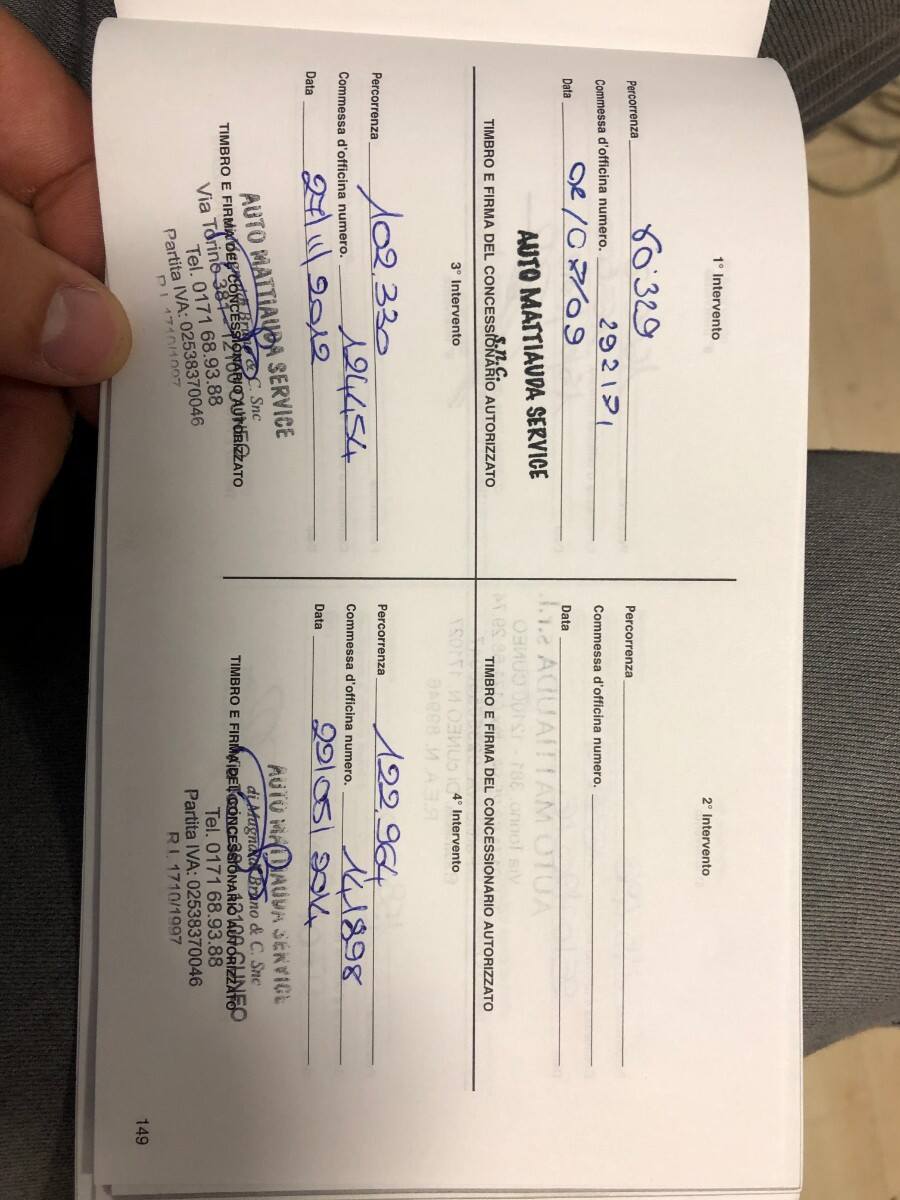 1° Intervento
Percorrenza 60.329
Commessa d'officina numero. 292171
Data 02/07/09
AUTO MATTIAUDA SERVICE
S.n.C.
TIMBRO E FIRMA DEL CONCESSIONARIO AUTORIZZATO
2° Intervento
Percorrenza
Commessa d'officina numero.
Data
TIMBRO E FIRMA DEL CONCESSIONARIO AUTORIZZATO
3° Intervento
Percorrenza 102.330
Commessa d'officina numero. 124454
Data 27/11/2012
AUTO MATTIAUDA SERVICE
Bruno & C. Snc
TIMBRO E FIRMA DEL CONCESSIONARIO AUTORIZZATO
Via Torino 381
Tel. 0171 68.93.88
Partita IVA: 02538370046
R.I. 1710/1997
4° Intervento
Percorrenza 122.964
Commessa d'officina numero. 141898
Data 22/05/2014
AUTO MATTIAUDA SERVICE
di Magnaldi Bruno & C. Snc
TIMBRO E FIRMA DEL CONCESSIONARIO AUTORIZZATO
12100 CUNEO
Tel. 0171 68.93.88
Partita IVA: 02538370046
R.I. 1710/1997
149